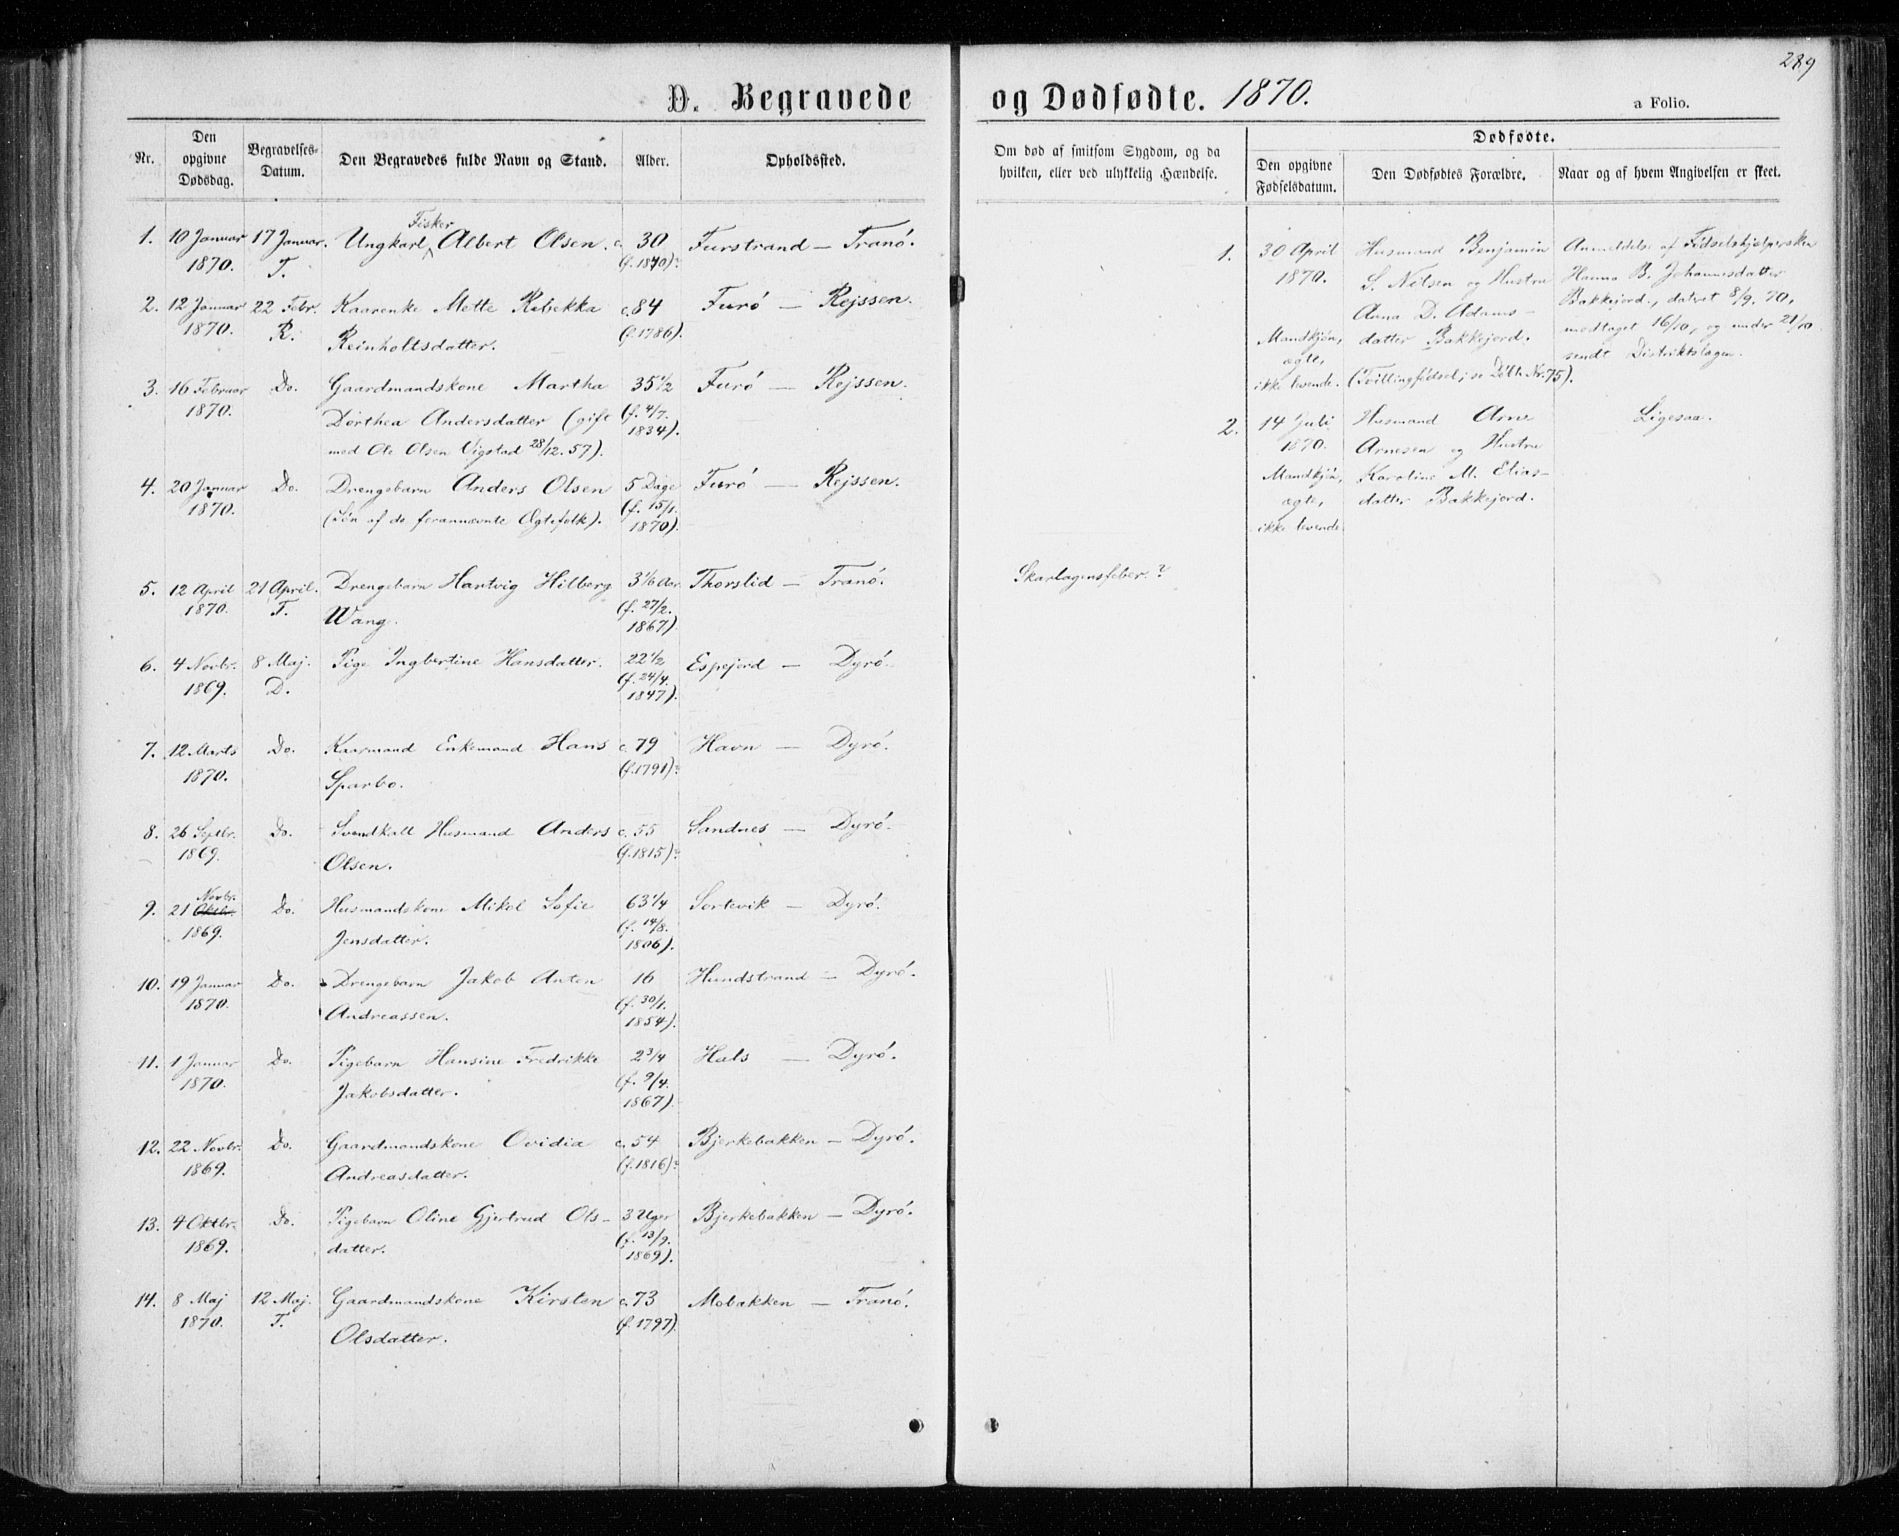 289
D. Begravede og Dødfødte. 1870.
a Folio.
Nr.
Den opgivne Dødsdag.
Begravelses-Datum.
Den Begravedes fulde Navn og Stand.
Alder.
Opholdssted.
Om død af smitsom Sygdom, og da hvilken, eller ved ulykkelig Hændelse.
Dødfødte.
Den opgivne Fødselsdatum.
Den Dødfødtes Forældre.
Naar og af hvem Angivelsen er skeet.
Fisker
1. 10 Januar 17 Januar. Ungkarl Albert Olsen. c. 30 Furstrand — Tranö.
1870. T. (f. 1840)?
2. 12 Januar 22 Febr. Kaarenke Mette Rebekka c. 84 Furö — Rejssen.
1870. R. Reinholtsdatter. (f. 1786).
3. 16 Februar Do. Gaardmandskone Martha 35 1/2 Furö — Rejssen.
1870. Dorthea Andersdatter (gift (f. 4/7.
med Ole Olsen Vigstad 28/12. 57). 1834).
4. 20 Januar Do. Drengebarn Anders Olsen 5 Dage Furö — Rejssen.
1870. (Sön af de forannævnte Ægtefolk). (f. 15/1.
1870).
5. 12 April 21 April. Drengebarn Hartvig Hilberg 3 1/6 Aar Thorslid — Tranö.
1870. T. Wang. (f. 27/2.
1867).
Skarlagensfeber?
6. 4 Novbr. 8 Maj. Pige Ingbertine Hansdatter. 22 1/2 Espejord — Dyrö.
1869. D. (f. 24/4.
1847).
7. 12 Marts Do. Kaarmand Enkemand Hans c. 79 Havn — Dyrö.
1870. Sparbo. (f. 1791)?
8. 26 Septbr. Do. Husmand Anders c. 55 Sandnes — Dyrö.
1869. Olsen. (f. 1815)?
Novbr.
9. 21 Oktbr. Do. Husmandskone Mikol Sofie 63 1/4 Sortevik — Dyrö.
1869. Jensdatter. (f. 14/8.
1806).
10. 19 Januar Do. Drengebarn Jakob Anton 16 Hundstrand — Dyrö.
1870. Andreassen. (f. 30/1.
1854).
11. 1 Januar Do. Pigebarn Hansine Fredrikke 2 3/4 Hals — Dyrö.
1870. Jakobsdatter. (f. 9/4.
1867).
12. 22 Novbr. Do. Gaardmandskone Ovidia c. 54 Bjerkebakken — Dyrö.
1869. Andreasdatter. (f. 1816)?
13. 4 Oktbr. Do. Pigebarn Oline Gjertrud Ols- 3 Uger Bjerkebakken — Dyrö.
1869. datter. (f. 13/9.
1869).
14. 8 Maj 12 Maj. Gaardmandskone Kirsten c. 73 Mobakken — Tranö.
1870. T. Olsdatter. (f. 1797).
1. 30 April Husmand Benjamin Anmeldelse af Födselshjelpersken
1870. S. Nilsen og Hustru Hanna B. Johannesdatter
Anna D. Adams- Bakkejord, datert 8/9. 70,
Mandkjön, datter Bakkejord. modtaget 16/10, og under 21/10
ægte, sendt Distriktslægen.
ikke levende. (Tvillingfödsel; se Döbte Nr. 75).
2. 14 Juli Husmand Arne Ligesaa.
1870. Arnesen og Hustru
Mandkjön, Karoline M. Elias-
ægte, datter Bakkejord.
ikke levende.